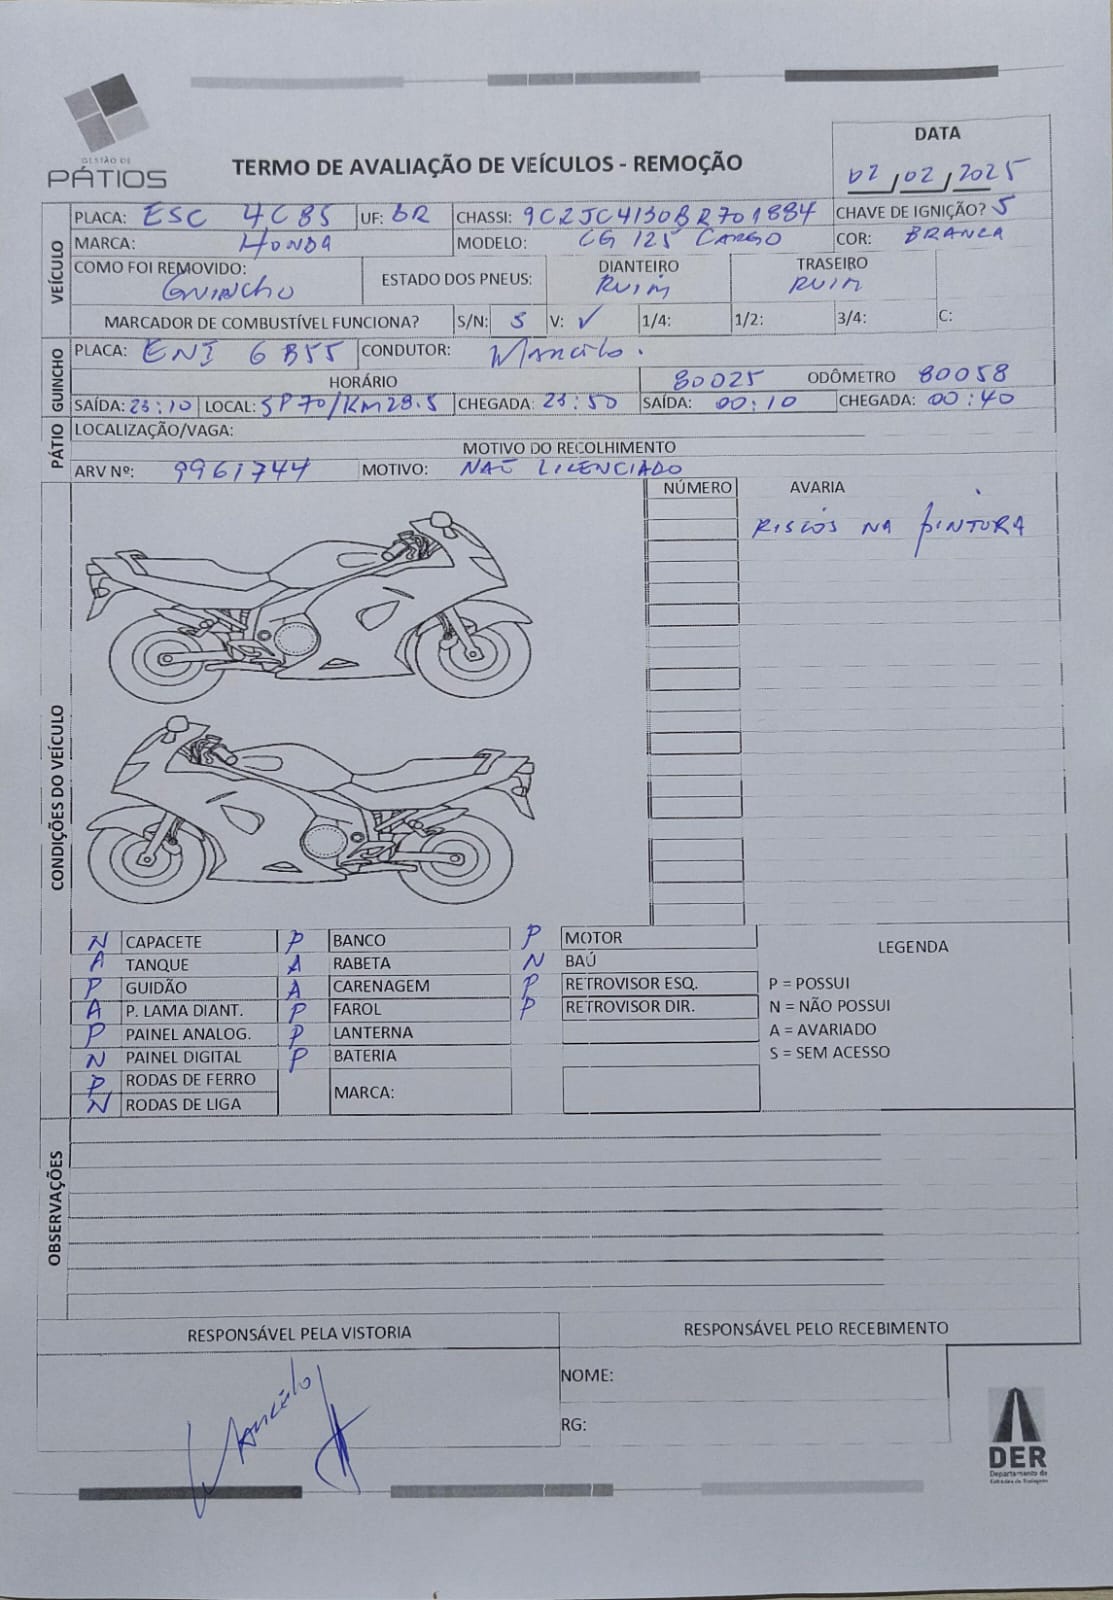 GESTÃO DE
PÁTIOS
TERMO DE AVALIAÇÃO DE VEÍCULOS - REMOÇÃO
DATA
02/02/2025
VEÍCULO
PLACA: ESC 4C85 UF: BR CHASSI: 9C2JC4130BR701884 CHAVE DE IGNIÇÃO? S
MARCA: HONDA MODELO: CG 125 CARGO COR: BRANCA
COMO FOI REMOVIDO: GUINCHO ESTADO DOS PNEUS: DIANTEIRO RUIM TRASEIRO RUIM
MARCADOR DE COMBUSTÍVEL FUNCIONA? S/N: S V: ✓ 1/4: 1/2: 3/4: C:
GUINCHO
PLACA: ENI 6B55 CONDUTOR: Marcelo.
HORÁRIO 80025 ODÔMETRO 80058
SAÍDA: 23:10 LOCAL: SP70/KM29.5 CHEGADA: 23:50 SAÍDA: 00:10 CHEGADA: 00:40
PÁTIO
LOCALIZAÇÃO/VAGA:
MOTIVO DO RECOLHIMENTO
ARV Nº: 9961744 MOTIVO: NAO LICENCIADO
CONDIÇÕES DO VEÍCULO
NÚMERO AVARIA
RISCOS NA PINTURA
N CAPACETE P BANCO P MOTOR
A TANQUE A RABETA N BAÚ
P GUIDÃO A CARENAGEM P RETROVISOR ESQ.
A P. LAMA DIANT. P FAROL P RETROVISOR DIR.
P PAINEL ANALOG. P LANTERNA
N PAINEL DIGITAL P BATERIA
P RODAS DE FERRO MARCA:
N RODAS DE LIGA
LEGENDA
P = POSSUI
N = NÃO POSSUI
A = AVARIADO
S = SEM ACESSO
OBSERVAÇÕES
RESPONSÁVEL PELA VISTORIA RESPONSÁVEL PELO RECEBIMENTO
Marcelo
NOME:
RG:
DER
Departamento de
Estradas de Rodagem